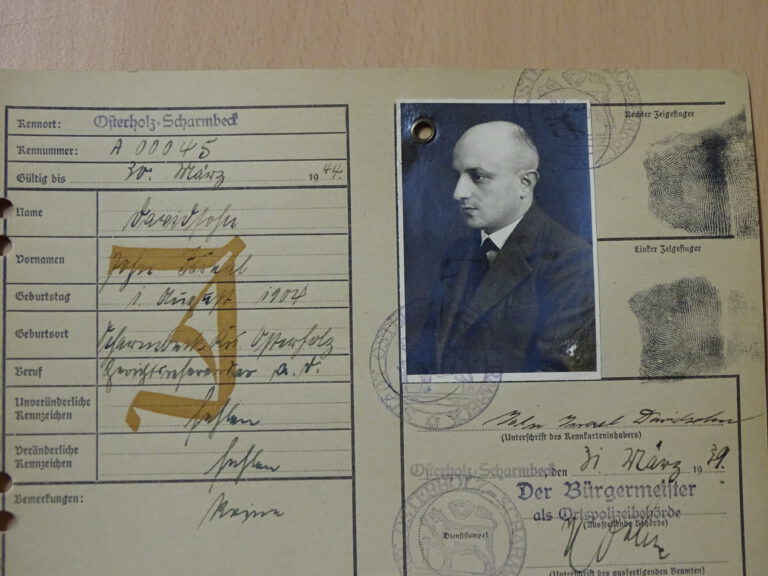 Kennort: Osterholz-Scharmbeck
Kennummer: A 00045
Gültig bis 30. März 1944.
Name Davidsohn
Vornamen John Israel
Geburtstag 1. August 1904
Geburtsort Scharmbeck Krs. Osterholz
Beruf Gerichtsreferendar a. D.
Unveränderliche
Kennzeichen fehlen
Veränderliche
Kennzeichen fehlen
Bemerkungen: Keine
J
Rechter Zeigefinger
Linker Zeigefinger
John Israel Davidsohn
(Unterschrift des Kennkarteninhabers)
Osterholz-Scharmbeck, den 31 März 1939.
Der Bürgermeister
als Ortspolizeibehörde
(Ausstellende Behörde)
Dienststempel
(Unterschrift des ausfertigenden Beamten)